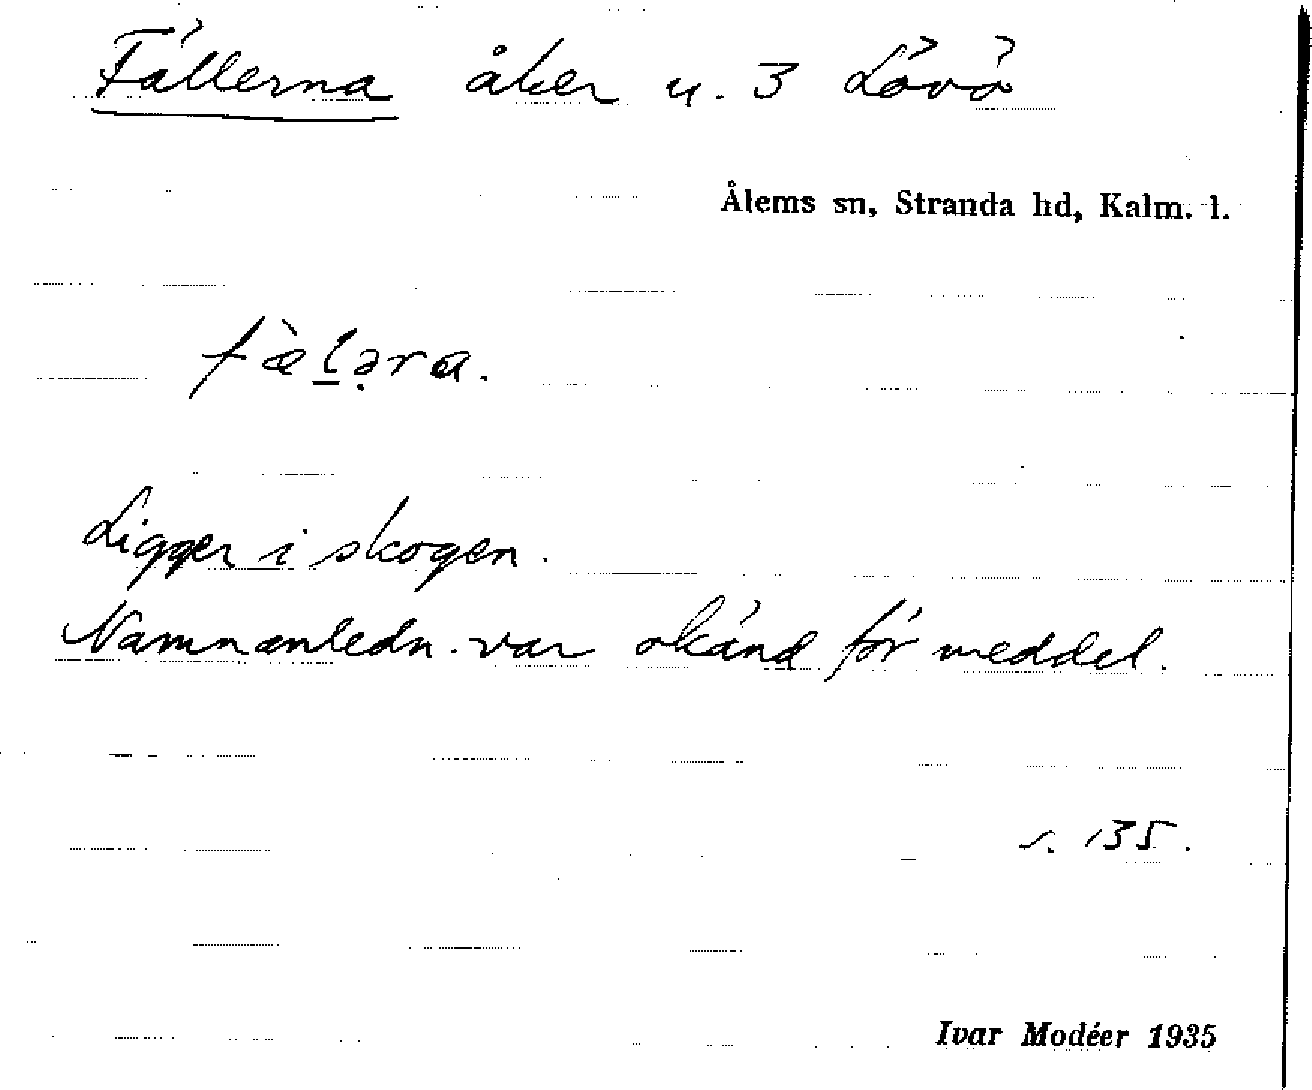 Fällerna åker u. 3 Lövö
Ålems sn, Stranda hd, Kalm. l.
fæ̀l̠ə̣ra.
Ligger i skogen.
Namnanledn. var okänd för meddel.
s. 135.
Ivar Modéer 1935